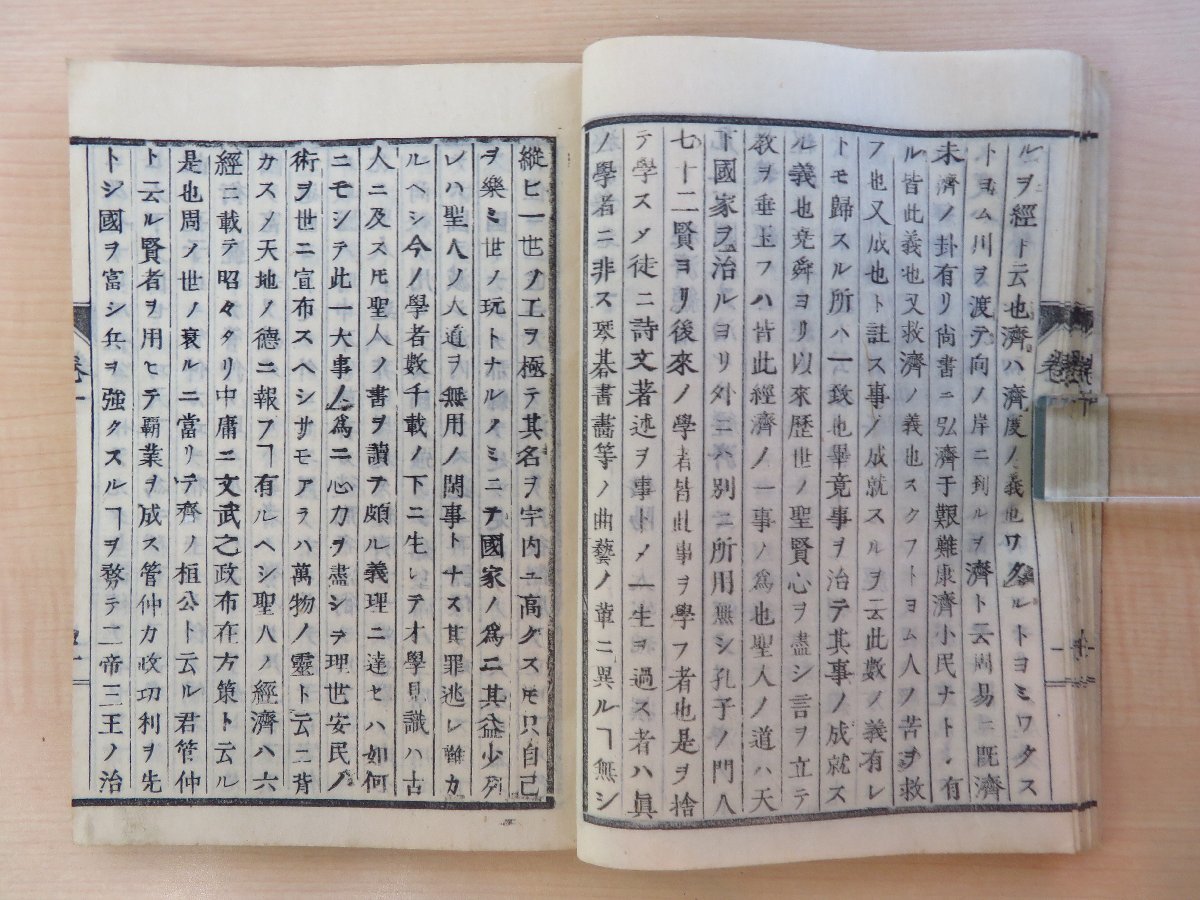 ルヲ經ト云也濟ハ濟度ノ義也ワタルトヨミワタス
トヨム川ヲ渡テ向ノ岸ニ到ルヲ濟ト云周易ニ既濟
未濟ノ卦有リ尚書ニ弘濟于艱難康濟小民ナト、有
ル皆此義也又救濟ノ義也スクフトヨム人ノ苦ヲ救
フ也又成也ト註ス事ノ成就スルヲ云此數ノ義有レ
トモ歸スル所ハ一致也畢竟事ヲ治テ其事ノ成就ス
ル義也堯舜ヨリ以來歷世ノ聖賢心ヲ盡シ言ヲ立テ
教ヲ垂玉フハ皆此經濟ノ一事ノ爲也聖人ノ道ハ天
下國家ヲ治ルヨリ外ニハ別ニ所用無シ孔子ノ門人
七十二賢ヨリ後來ノ學者皆此事ヲ學フ者也是ヲ捨
テ學スメ徒ニ詩文著述ヲ事トメ一生ヲ過ス者ハ眞
ノ學者ニ非ス琴碁書畫等ノ曲藝ノ輩ニ異ルヿ無シ
縱ヒ一世ノ工ヲ極テ其名ヲ宇内ニ高クスㇳモ只自己
ヲ樂ミ世ノ玩トナルノミニテ國家ノ爲ニ其益少列
レハ聖人ノ大道ヲ無用ノ閑事トナス其罪逃レ難カ
ルヘシ今ノ學者數千載ノ下ニ生レテオ學見識ハ古
人ニ及スㇳモ聖人ノ書ヲ讀テ頗ル義理ニ達セハ如何
ニモシテ此一大事ノ爲ニ心力ヲ盡シテ理世安民ノ
術ヲ世ニ宣布スヘシサモアラハ萬物ノ靈ト云ニ背
カスメ天地ノ德ニ報フヿ有ルヘシ聖人ノ經濟ハ六
經ニ載テ昭々タリ中庸ニ文武之政布在方策ト云ル
是也周ノ世ノ衰ルニ當リテ齊ノ桓公ト云ル君管仲
ト云ル賢者ヲ用ヒテ覇業ヲ成ス管仲カ政功利ヲ先
トシ國ヲ富シ兵ヲ強クスルヿヲ務テ二帝三王ノ治
卷一